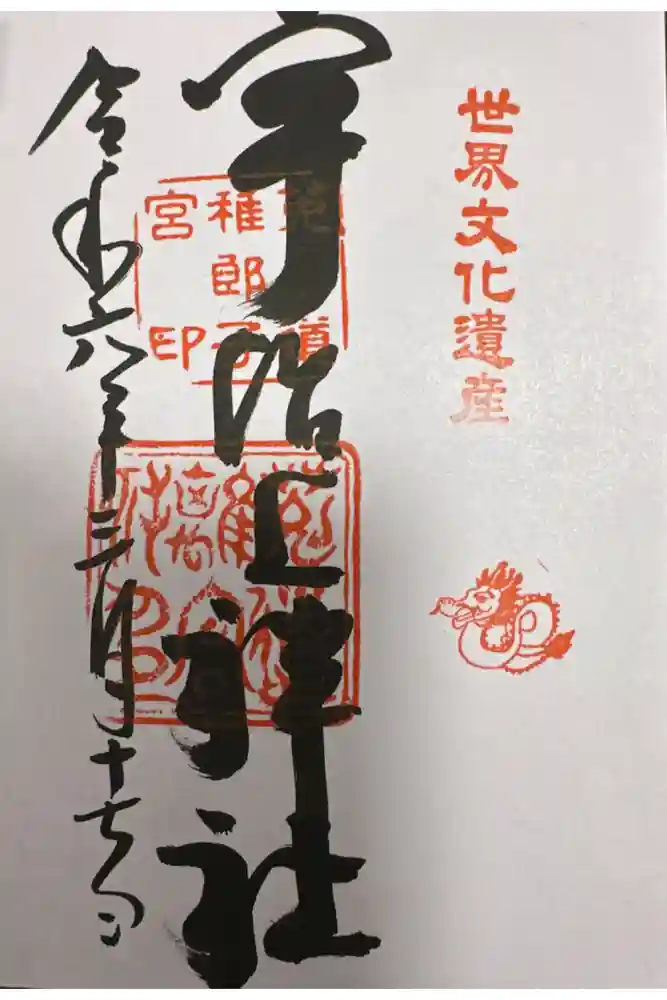 世界文化遺産
宇治上神社
菟道
稚郎子
宮印
令和六年三月十七日